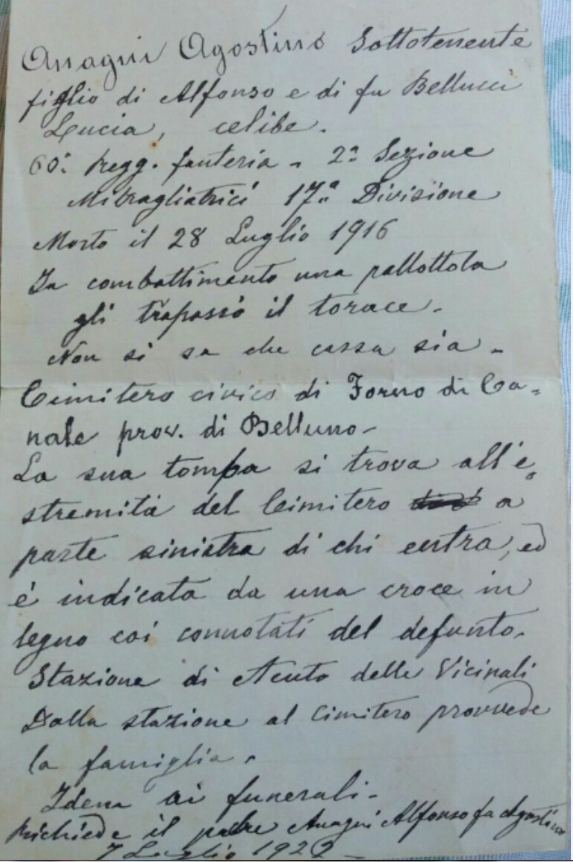 Anagni Agostino Sottotenente
figlio di Alfonso e di fu Bellucci
Lucia, celibe.
60º Regg. fanteria - 2ª Sezione
Mitragliatrici 17ª Divisione
Morto il 28 Luglio 1916
In combattimento una pallottola
gli trapassò il torace.
Non si sa che cassa sia -
Cimitero civico di Forno di Ca-
nale prov. di Belluno -
La sua tomba si trova all'e-
stremità del Cimitero a
parte sinistra di chi entra, ed
è indicata da una croce in
legno coi connotati del defunto.
Stazione di Acuto delle Vicinali
Dalla stazione al Cimitero provvede
la famiglia.
Idem ai funerali.
Richiede il padre Anagni Alfonso fu Agostino
7 Luglio